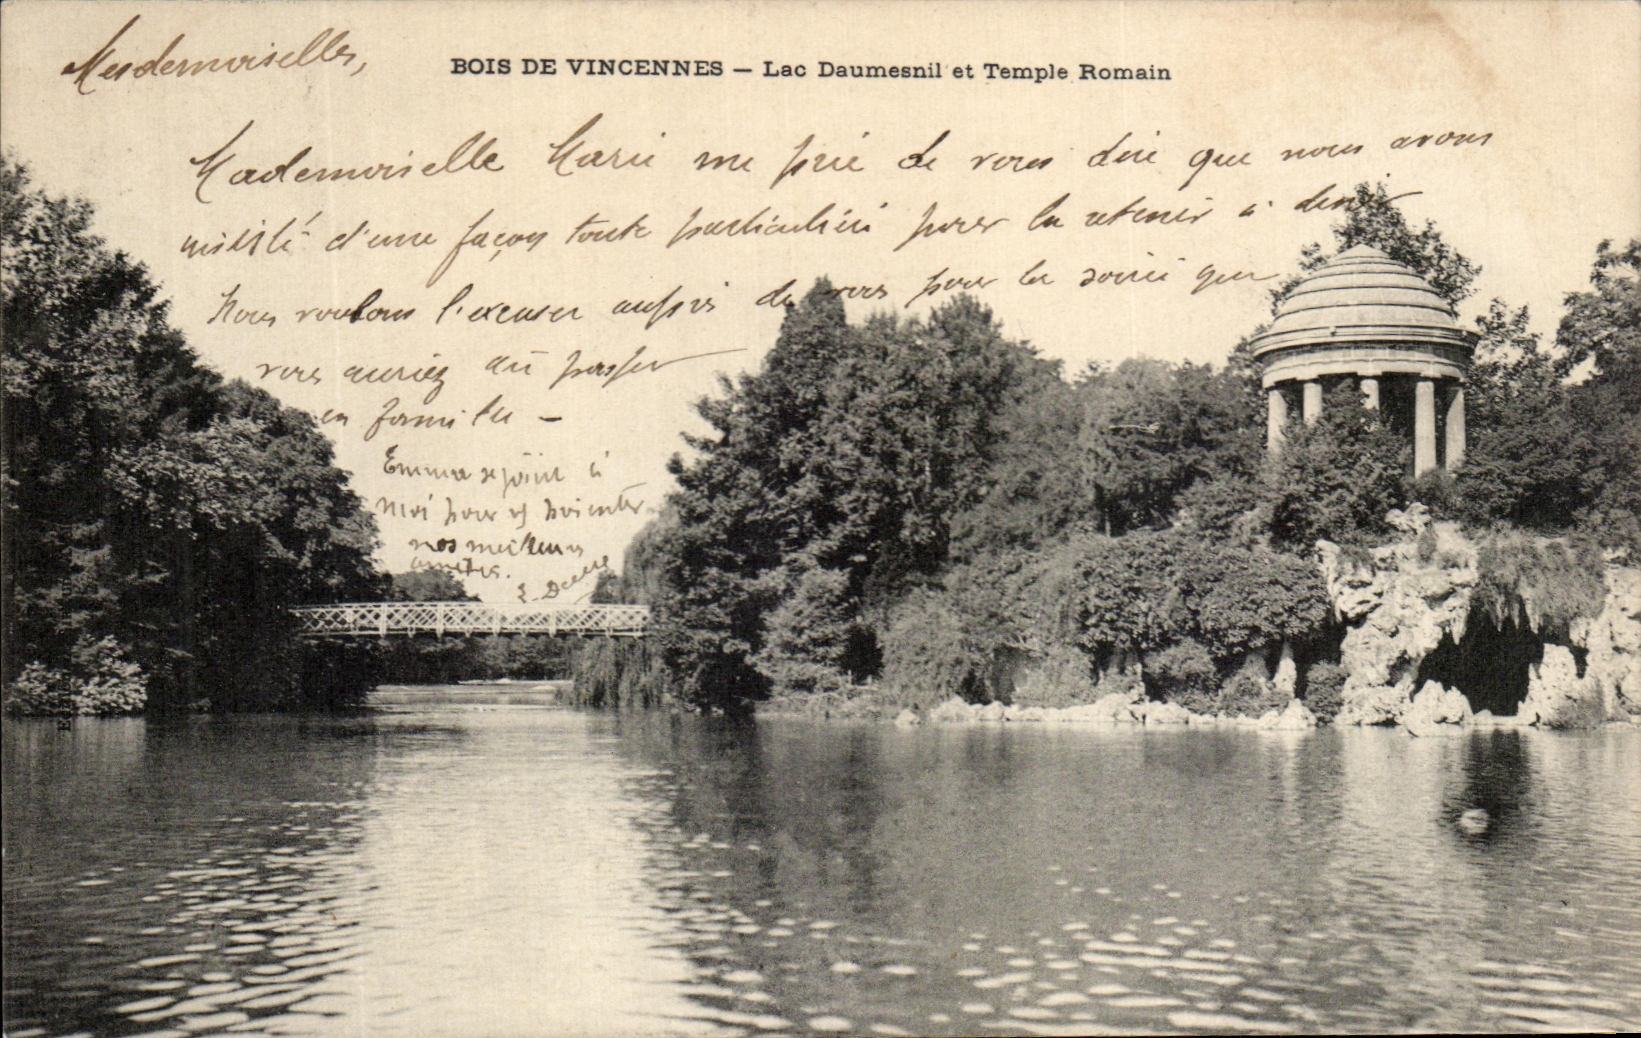 Mesdemoiselles,
BOIS DE VINCENNES — Lac Daumesnil et Temple Romain
Mademoiselle Marie me prie de vous dire que nous avons
insisté d'une façon toute particulière pour la retenir à dîner
Nous voulons l'excuser auprès de vous pour la soirée que
vous auriez dû passer
en famille —
Emma se joint à
moi pour
nos meilleures
amitiés.